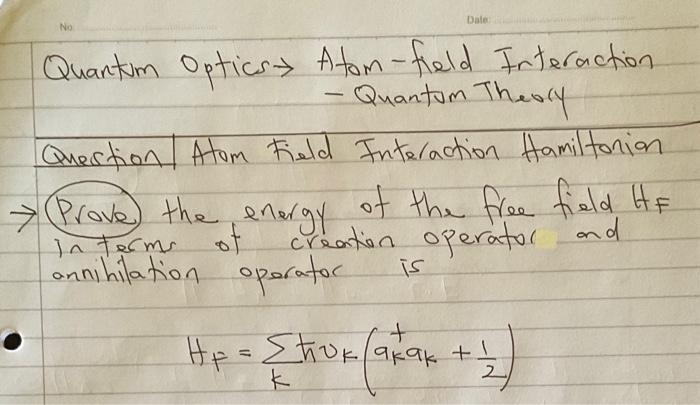 No.
Date:
Quantum Optics → Atom-field Interaction
- Quantum Theory
Question | Atom Field Interaction Hamiltonian
→ Prove the energy of the free field H_F
in terms of creation operator and
annihilation operator is
H_F = Σ_k ħν_k (a_k^† a_k + 1/2)